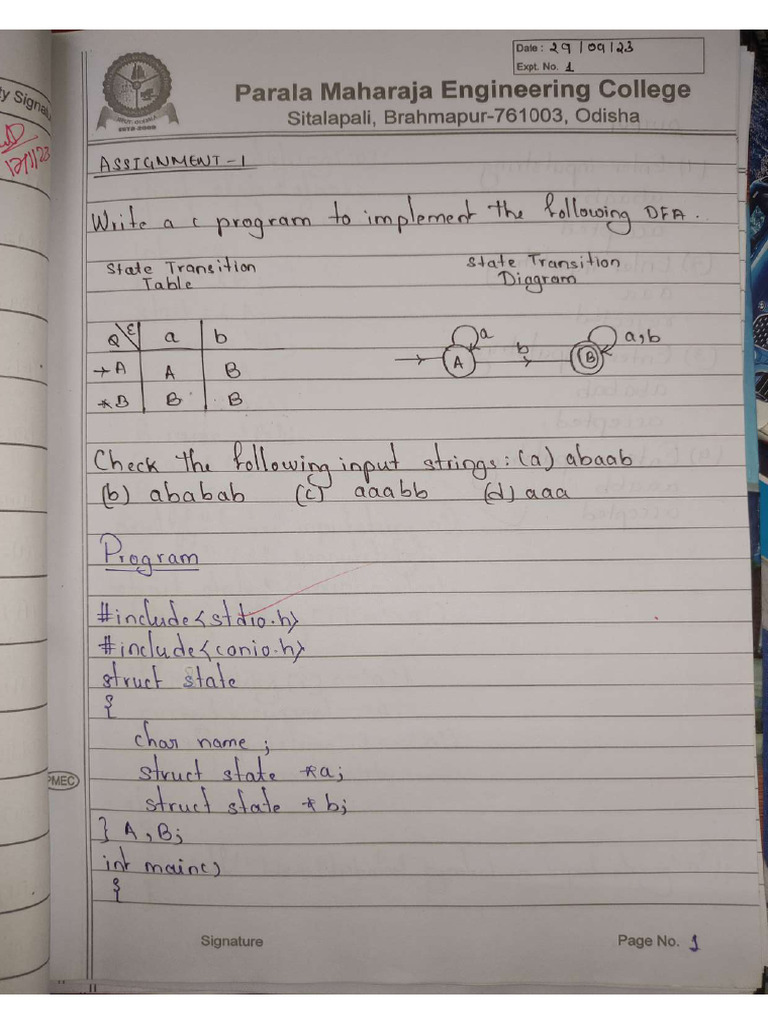 Date : 29/09/23
Expt. No. 1
Parala Maharaja Engineering College
Sitalapali, Brahmapur-761003, Odisha
ASSIGNMENT-1
Write a c program to implement the following DFA.
State Transition Table
State Transition Diagram
Q\Σ a b
→A A B
*B B B
a
b
a,b
A
B
Check the following input strings: (a) abaab
(b) ababab (c) aaabb (d) aaa
Program
#include<stdio.h>
#include<conio.h>
struct state
{
char name;
struct state *a;
struct state *b;
} A, B;
int main()
{
Signature
Page No. 1
PMEC
12/1/23